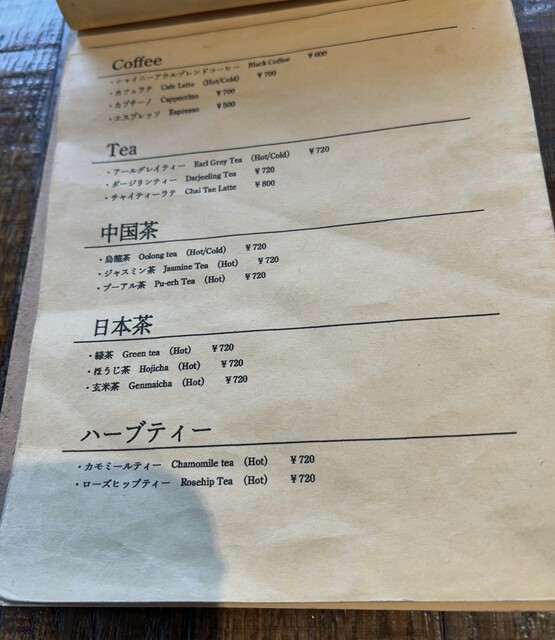 Coffee
・シャイニーアウルブレンドコーヒー Black Coffee ¥600
・カフェラテ Cafe Latte (Hot/Cold) ¥700
・カプチーノ Cappuccino ¥700
・エスプレッソ Espresso ¥500
Tea
・アールグレイティー Earl Grey Tea (Hot/Cold) ¥720
・ダージリンティー Darjeeling Tea ¥720
・チャイティーラテ Chai Tae Latte ¥800
中国茶
・烏龍茶 Oolong tea (Hot/Cold) ¥720
・ジャスミン茶 Jasmine Tea (Hot) ¥720
・プーアル茶 Pu-erh Tea (Hot) ¥720
日本茶
・緑茶 Green tea (Hot) ¥720
・ほうじ茶 Hojicha (Hot) ¥720
・玄米茶 Genmaicha (Hot) ¥720
ハーブティー
・カモミールティー Chamomile tea (Hot) ¥720
・ローズヒップティー Rosehip Tea (Hot) ¥720